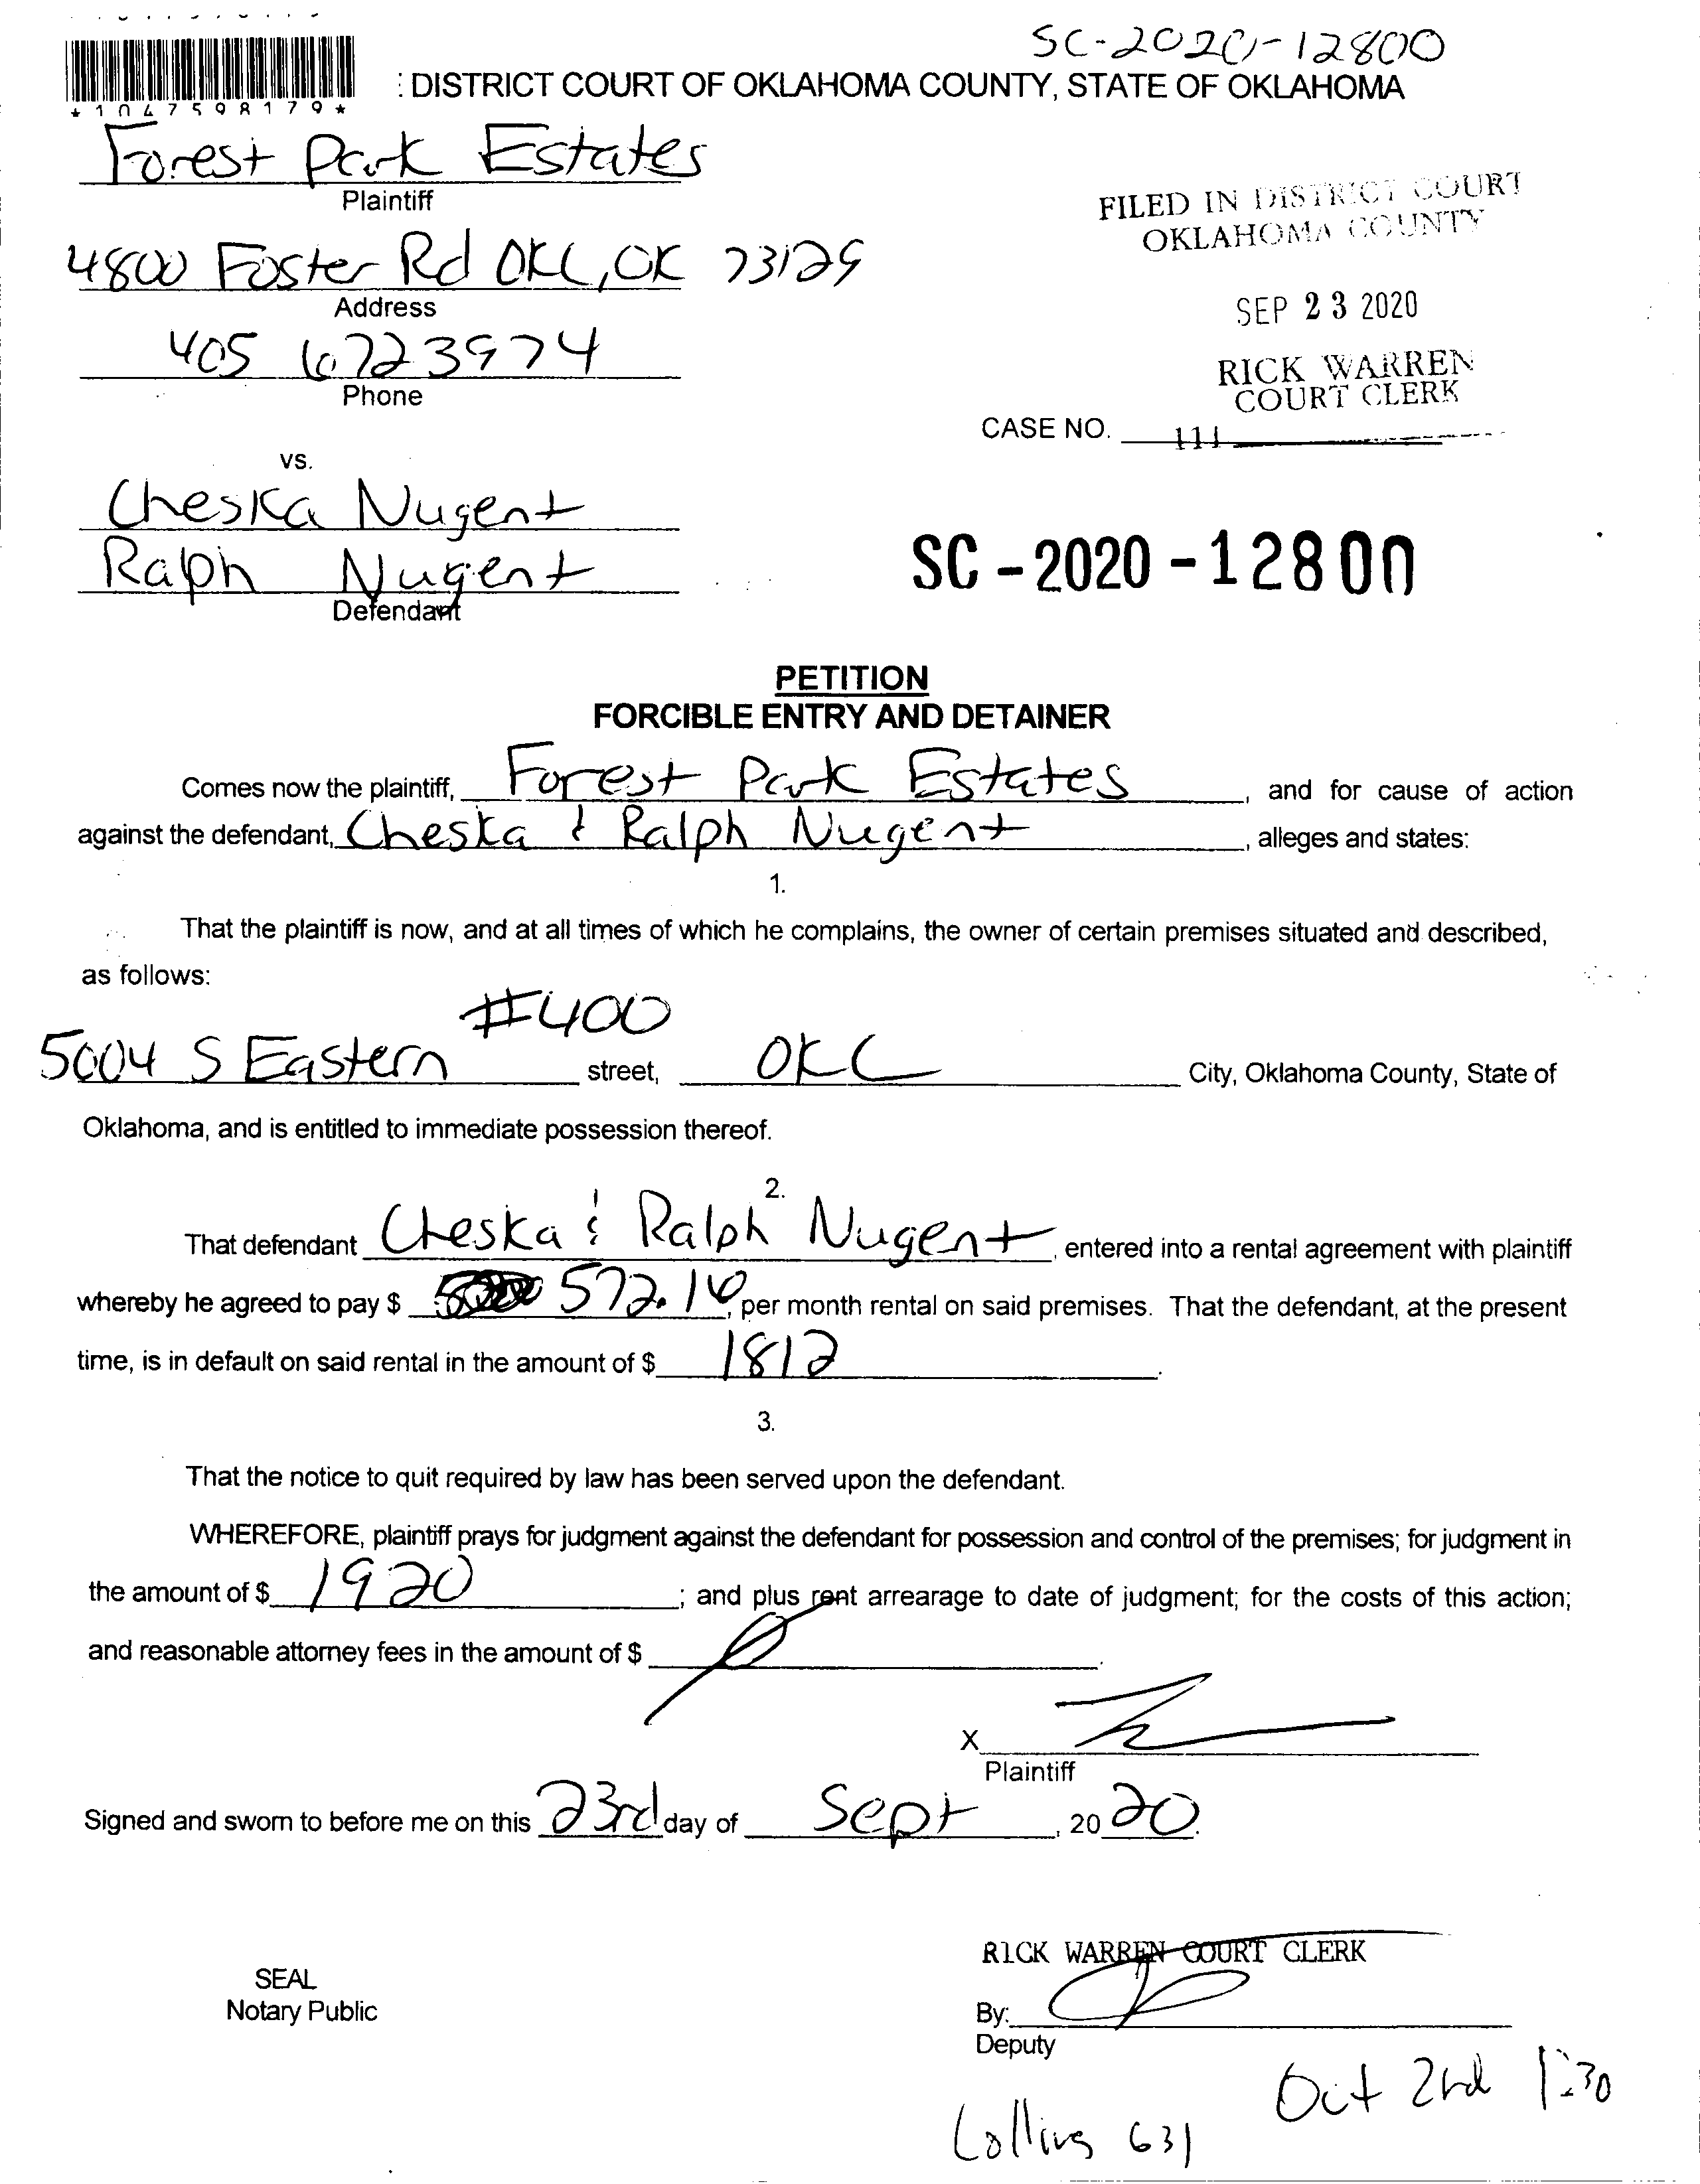 SC-2020-12800
*1047598179*
: DISTRICT COURT OF OKLAHOMA COUNTY, STATE OF OKLAHOMA
Forest Park Estates
Plaintiff
FILED IN DISTRICT COURT
OKLAHOMA COUNTY
4800 Foster Rd OKC, OK 73129
Address
SEP 23 2020
405 6723974
Phone
RICK WARREN
COURT CLERK
CASE NO.
vs.
Cheska Nugent
Ralph Nugent
Defendant
SC-2020-12800
PETITION
FORCIBLE ENTRY AND DETAINER
Comes now the plaintiff, Forest Park Estates, and for cause of action
against the defendant, Cheska & Ralph Nugent, alleges and states:
1.
That the plaintiff is now, and at all times of which he complains, the owner of certain premises situated and described,
as follows:
#400
5004 S Eastern street, OKC City, Oklahoma County, State of
Oklahoma, and is entitled to immediate possession thereof.
2.
That defendant Cheska & Ralph Nugent, entered into a rental agreement with plaintiff
whereby he agreed to pay $ 572.16, per month rental on said premises. That the defendant, at the present
time, is in default on said rental in the amount of $ 1812.
3.
That the notice to quit required by law has been served upon the defendant.
WHEREFORE, plaintiff prays for judgment against the defendant for possession and control of the premises; for judgment in
the amount of $ 1920; and plus rent arrearage to date of judgment; for the costs of this action;
and reasonable attorney fees in the amount of $ .
X
Plaintiff
Signed and sworn to before me on this 23rd day of Sept, 2020.
RICK WARREN COURT CLERK
SEAL
Notary Public
By:
Deputy
Oct 2nd 1:30
Collins 631